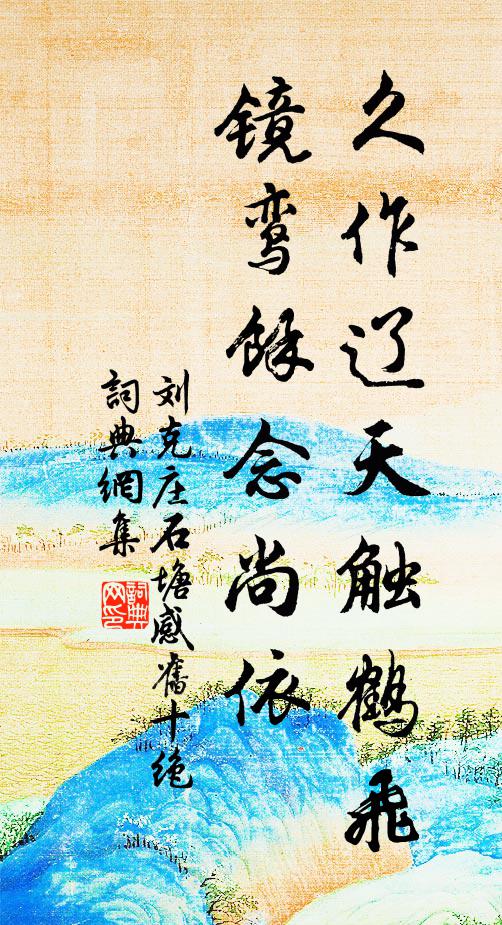 久作辽天触鹤飞
镜鸾餘念尚依
刘克庄石塘感舊十绝
詞典網集
詞典
网印